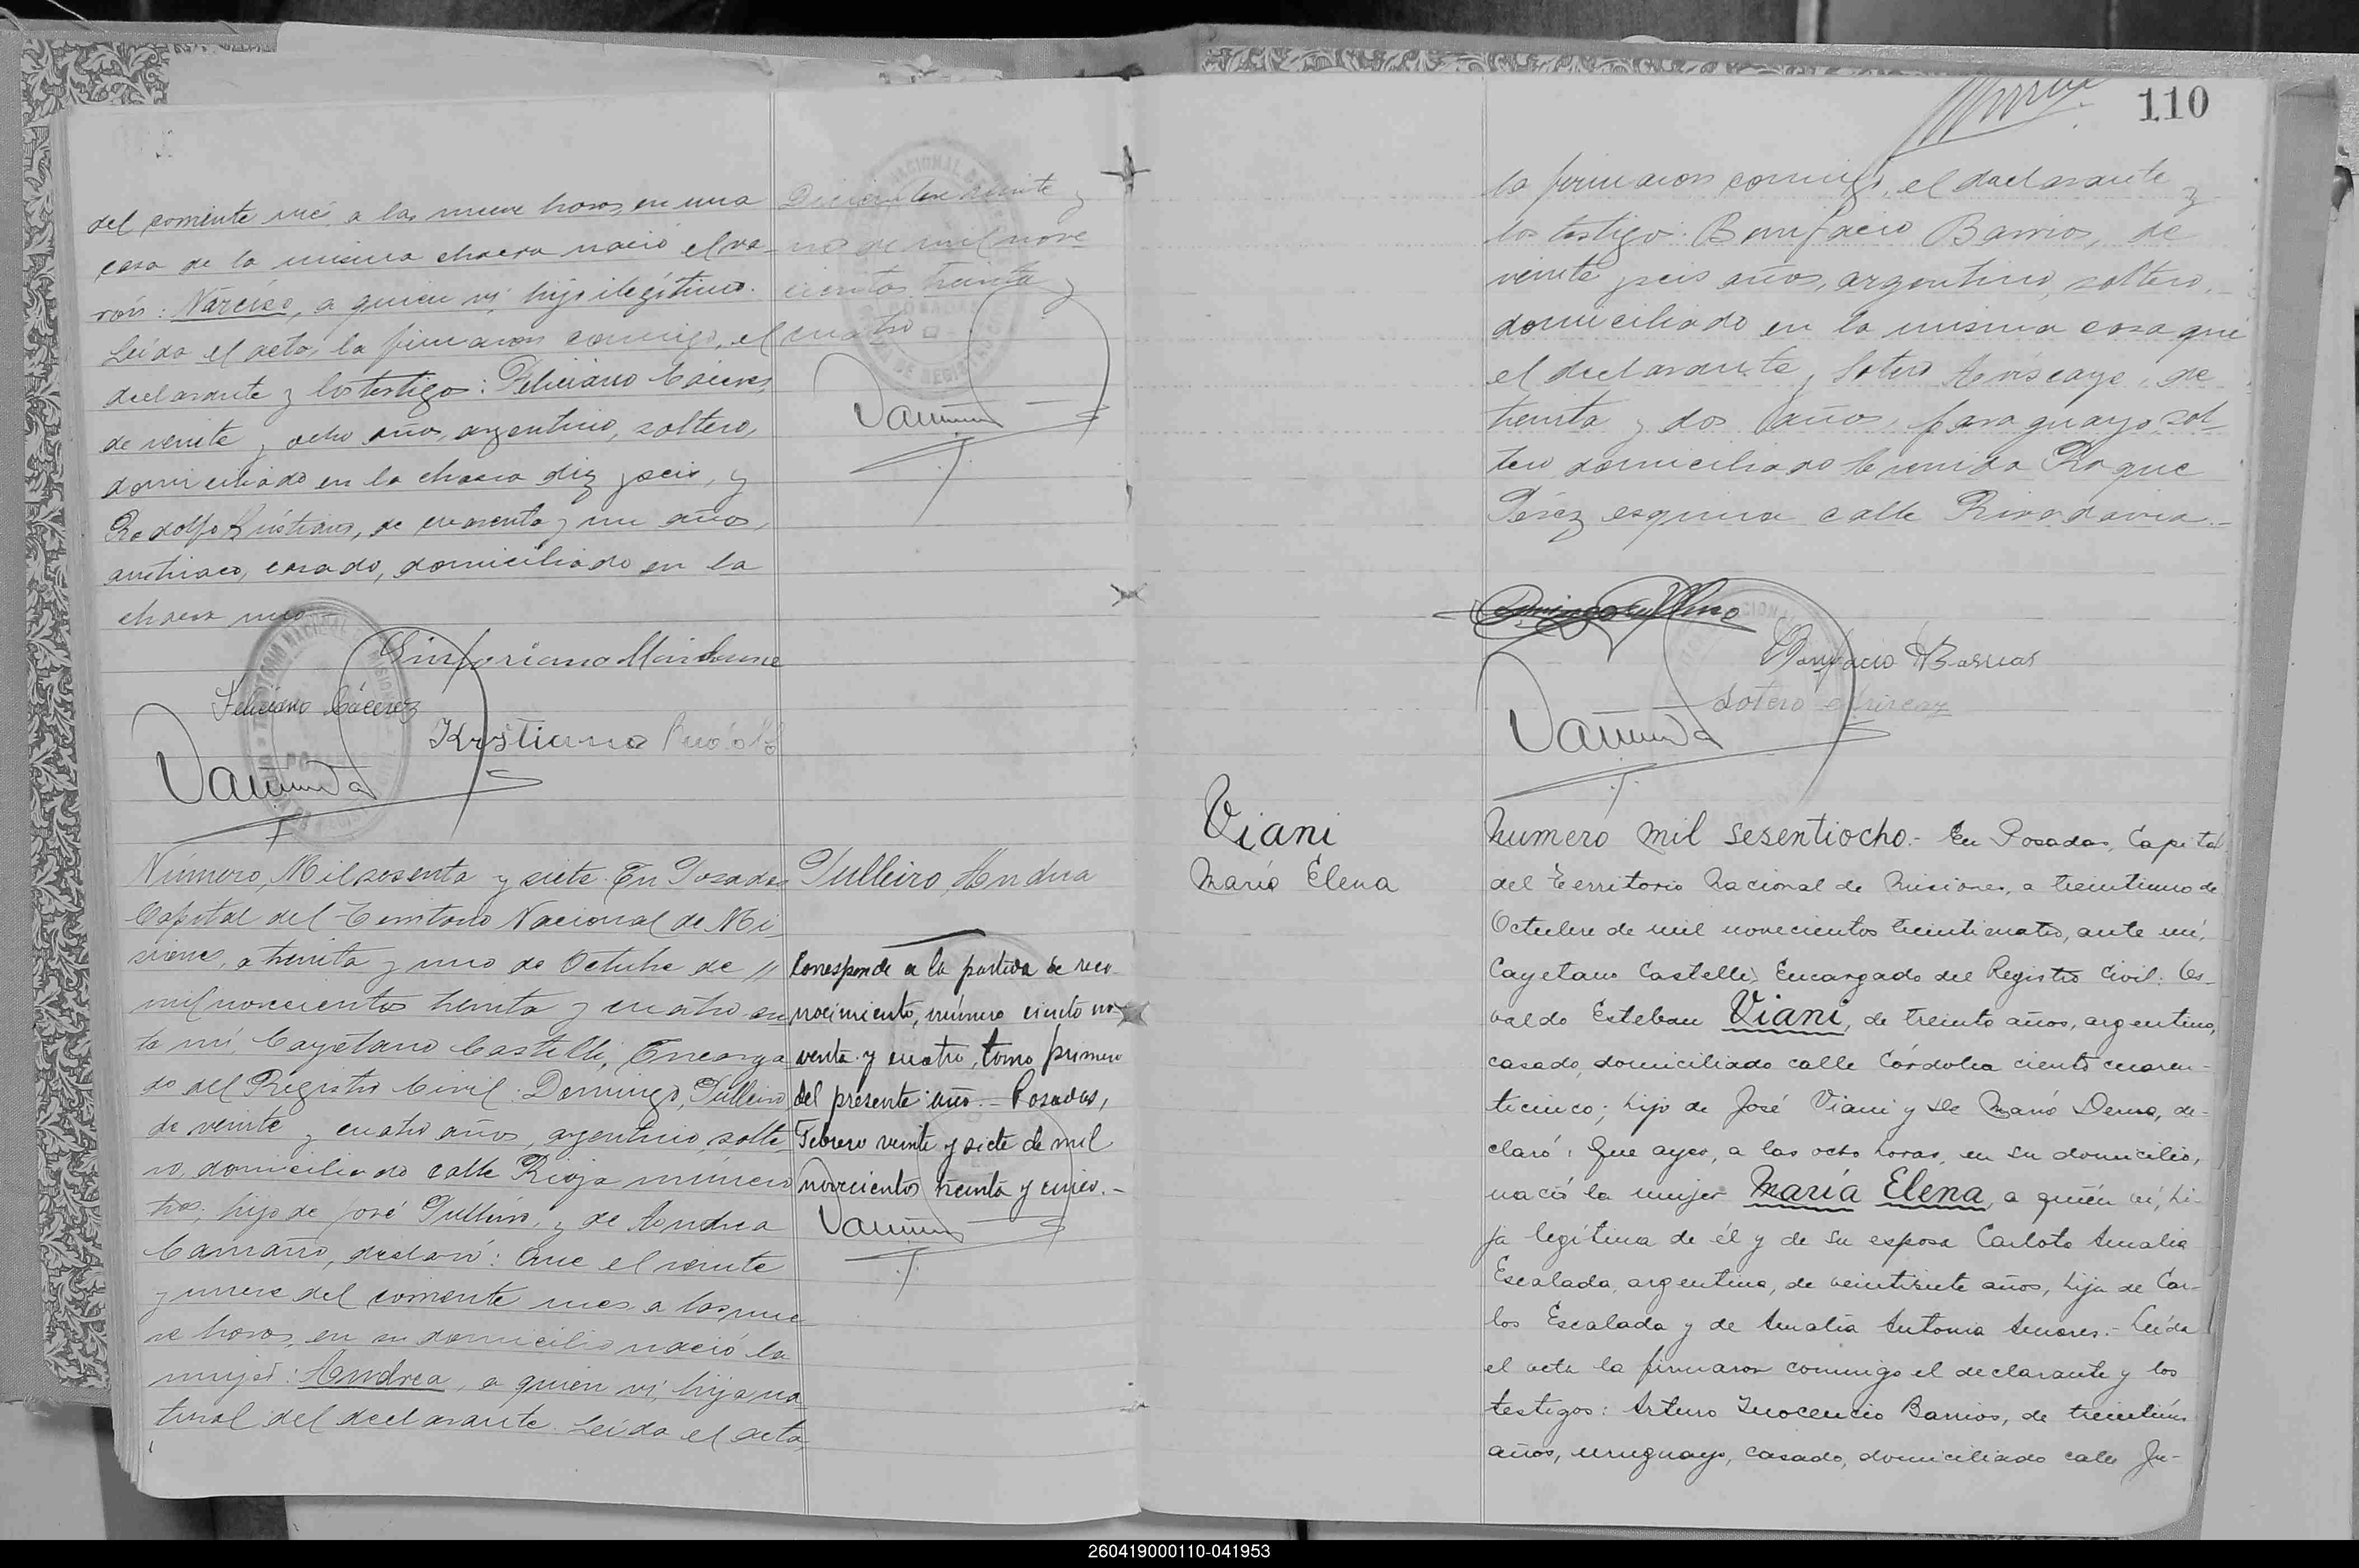 del corriente mes, a las nueve horas, en una
casa de la misma chacra nació el va-
rón: Narciso, a quien vi, hijo ilegítimo.
Leída el acta, la firmaron conmigo, el
declarante y los testigos: Feliciano Cáceres,
de veinte y ocho años, argentino, soltero,
domiciliado en la chacra diez y seis, y
Rodolfo Kristians, de cuarenta y un años,
austriaco, casado, domiciliado en la
chacra
Sinforiano
Feliciano Cácerez
Número, Mil sesenta y siete. En Posadas
Capital del Territorio Nacional de Mi-
siones, a treinta y uno de Octubre de
mil novecientos treinta y cuatro an
te mi, Cayetano Castelli, Encarga
do del Registro Civil: Domingo, Tulleiro,
de veinte y cuatro años, argentino, solte
ro, domiciliado calle Rioja número
tres; hijo de José Tulleiro, y de Andrea
Camaño, declaró: Que el veinte
y nueve del corriente mes a las nue
ve horas, en su domicilio nació la
mujer: Andrea, a quien vi, hija na
tural del declarante. Leída el acta
Diciembre veinte y
uno de mil nove
cientos treinta y
cuatro
Tulleiro Andrea
Corresponde a la partida de reco-
nocimiento, número ciento no-
venta y cuatro, tomo primero
del presente año.- Posadas,
Febrero veinte y siete de mil
novecientos treinta y cinco.-
110
la firmaron conmigo, el declarante y
los testigo: Bonifacio Barrios, de
veinte y seis años, argentino, soltero,
domiciliado en la misma casa que
el declarante y Sotero de
treinta y dos años, paraguayo, sol-
tero domiciliado Avenida Roque
Pérez esquina calle Rivadavia.-
Bonifacio Barrios
Sotero
Viani
María Elena
Número mil sesentiocho.- En Posadas, Capital
del Territorio Nacional de Misiones, a treintiuno de
Octubre de mil novecientos treinticuatro, ante mí,
Cayetano Castelli, Encargado del Registro Civil: Os-
valdo Esteban Viani, de treinta años, argentino,
casado, domiciliado calle Córdoba ciento cuaren-
ticinco; hijo de José Viani y de María, de-
claró: Que ayer, a las ocho horas, en su domicilio,
nació la mujer María Elena, a quién ví, hi-
ja legítima de él y de su esposa Carlota Amalia
Escalada, argentina, de veintisiete años, hija de Car-
los Escalada y de Amalia Antonia.- Leída
el acta la firmaron conmigo el declarante y los
testigos: Arturo Inocencio Barrios, de treintiún
años, uruguayo, casado, domiciliado calle Ju-
260419000110-041953